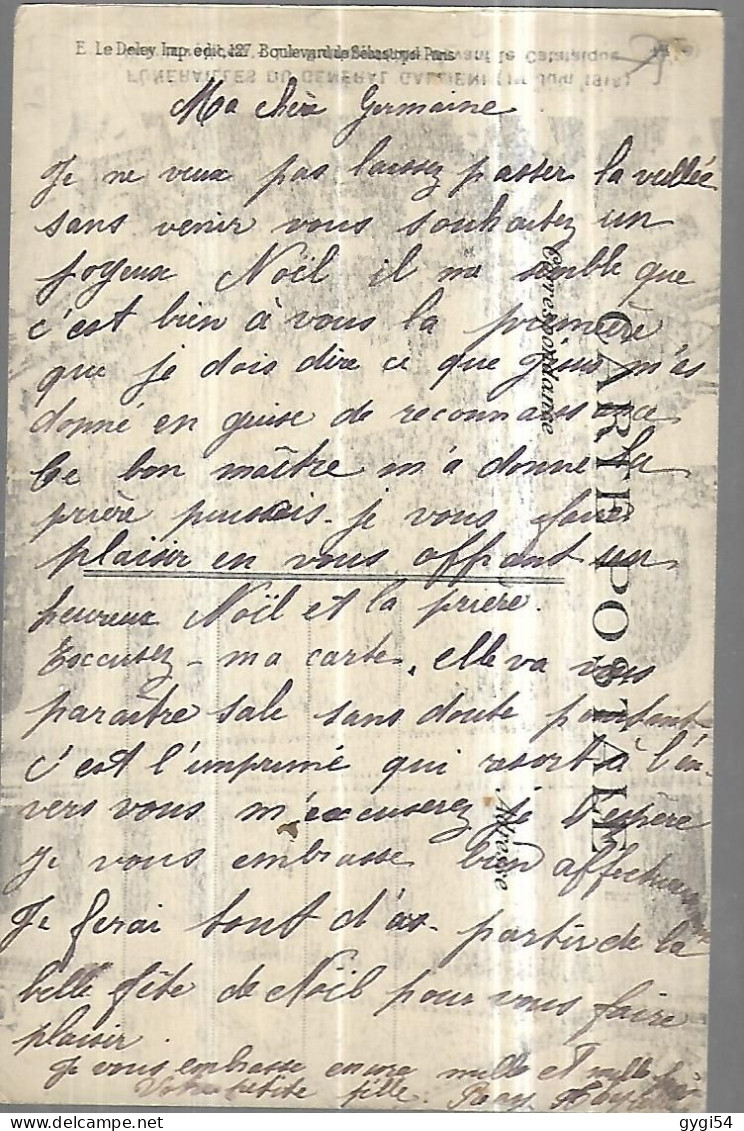 E. Le Deley, Imp. édit, 127, Boulevard de Sébastopol Paris
FUNÉRAILLES DU GÉNÉRAL GALLIÉNI (1er Juin 1916)
Ma chère Germaine
Je ne veux pas laissez passer la veillée
sans venir vous souhaitez un
joyeux Noël il me semble que
c'est bien à vous la première
que je dois dire ce que Jésus m'as
donné en guise de reconnaissance
Ce bon maître m'a donné la
prière puissais-je vous faire
plaisir en vous offrant un
heureux Noël et la prière.
Exccusez-ma carte, elle va vous
paraître sale sans doute pourtant
c'est l'imprimé qui resort à l'en-
vers vous m'exccuserez je l'espère
Je vous embrasse bien affectueu
Je ferai tout d'as partir de la
belle fête de Noël pour vous faire
plaisir.
Je vous embrasse encore mille et mille fois
Votre petite fille.
CARTE POSTALE
Correspondance
Adresse
gygi54